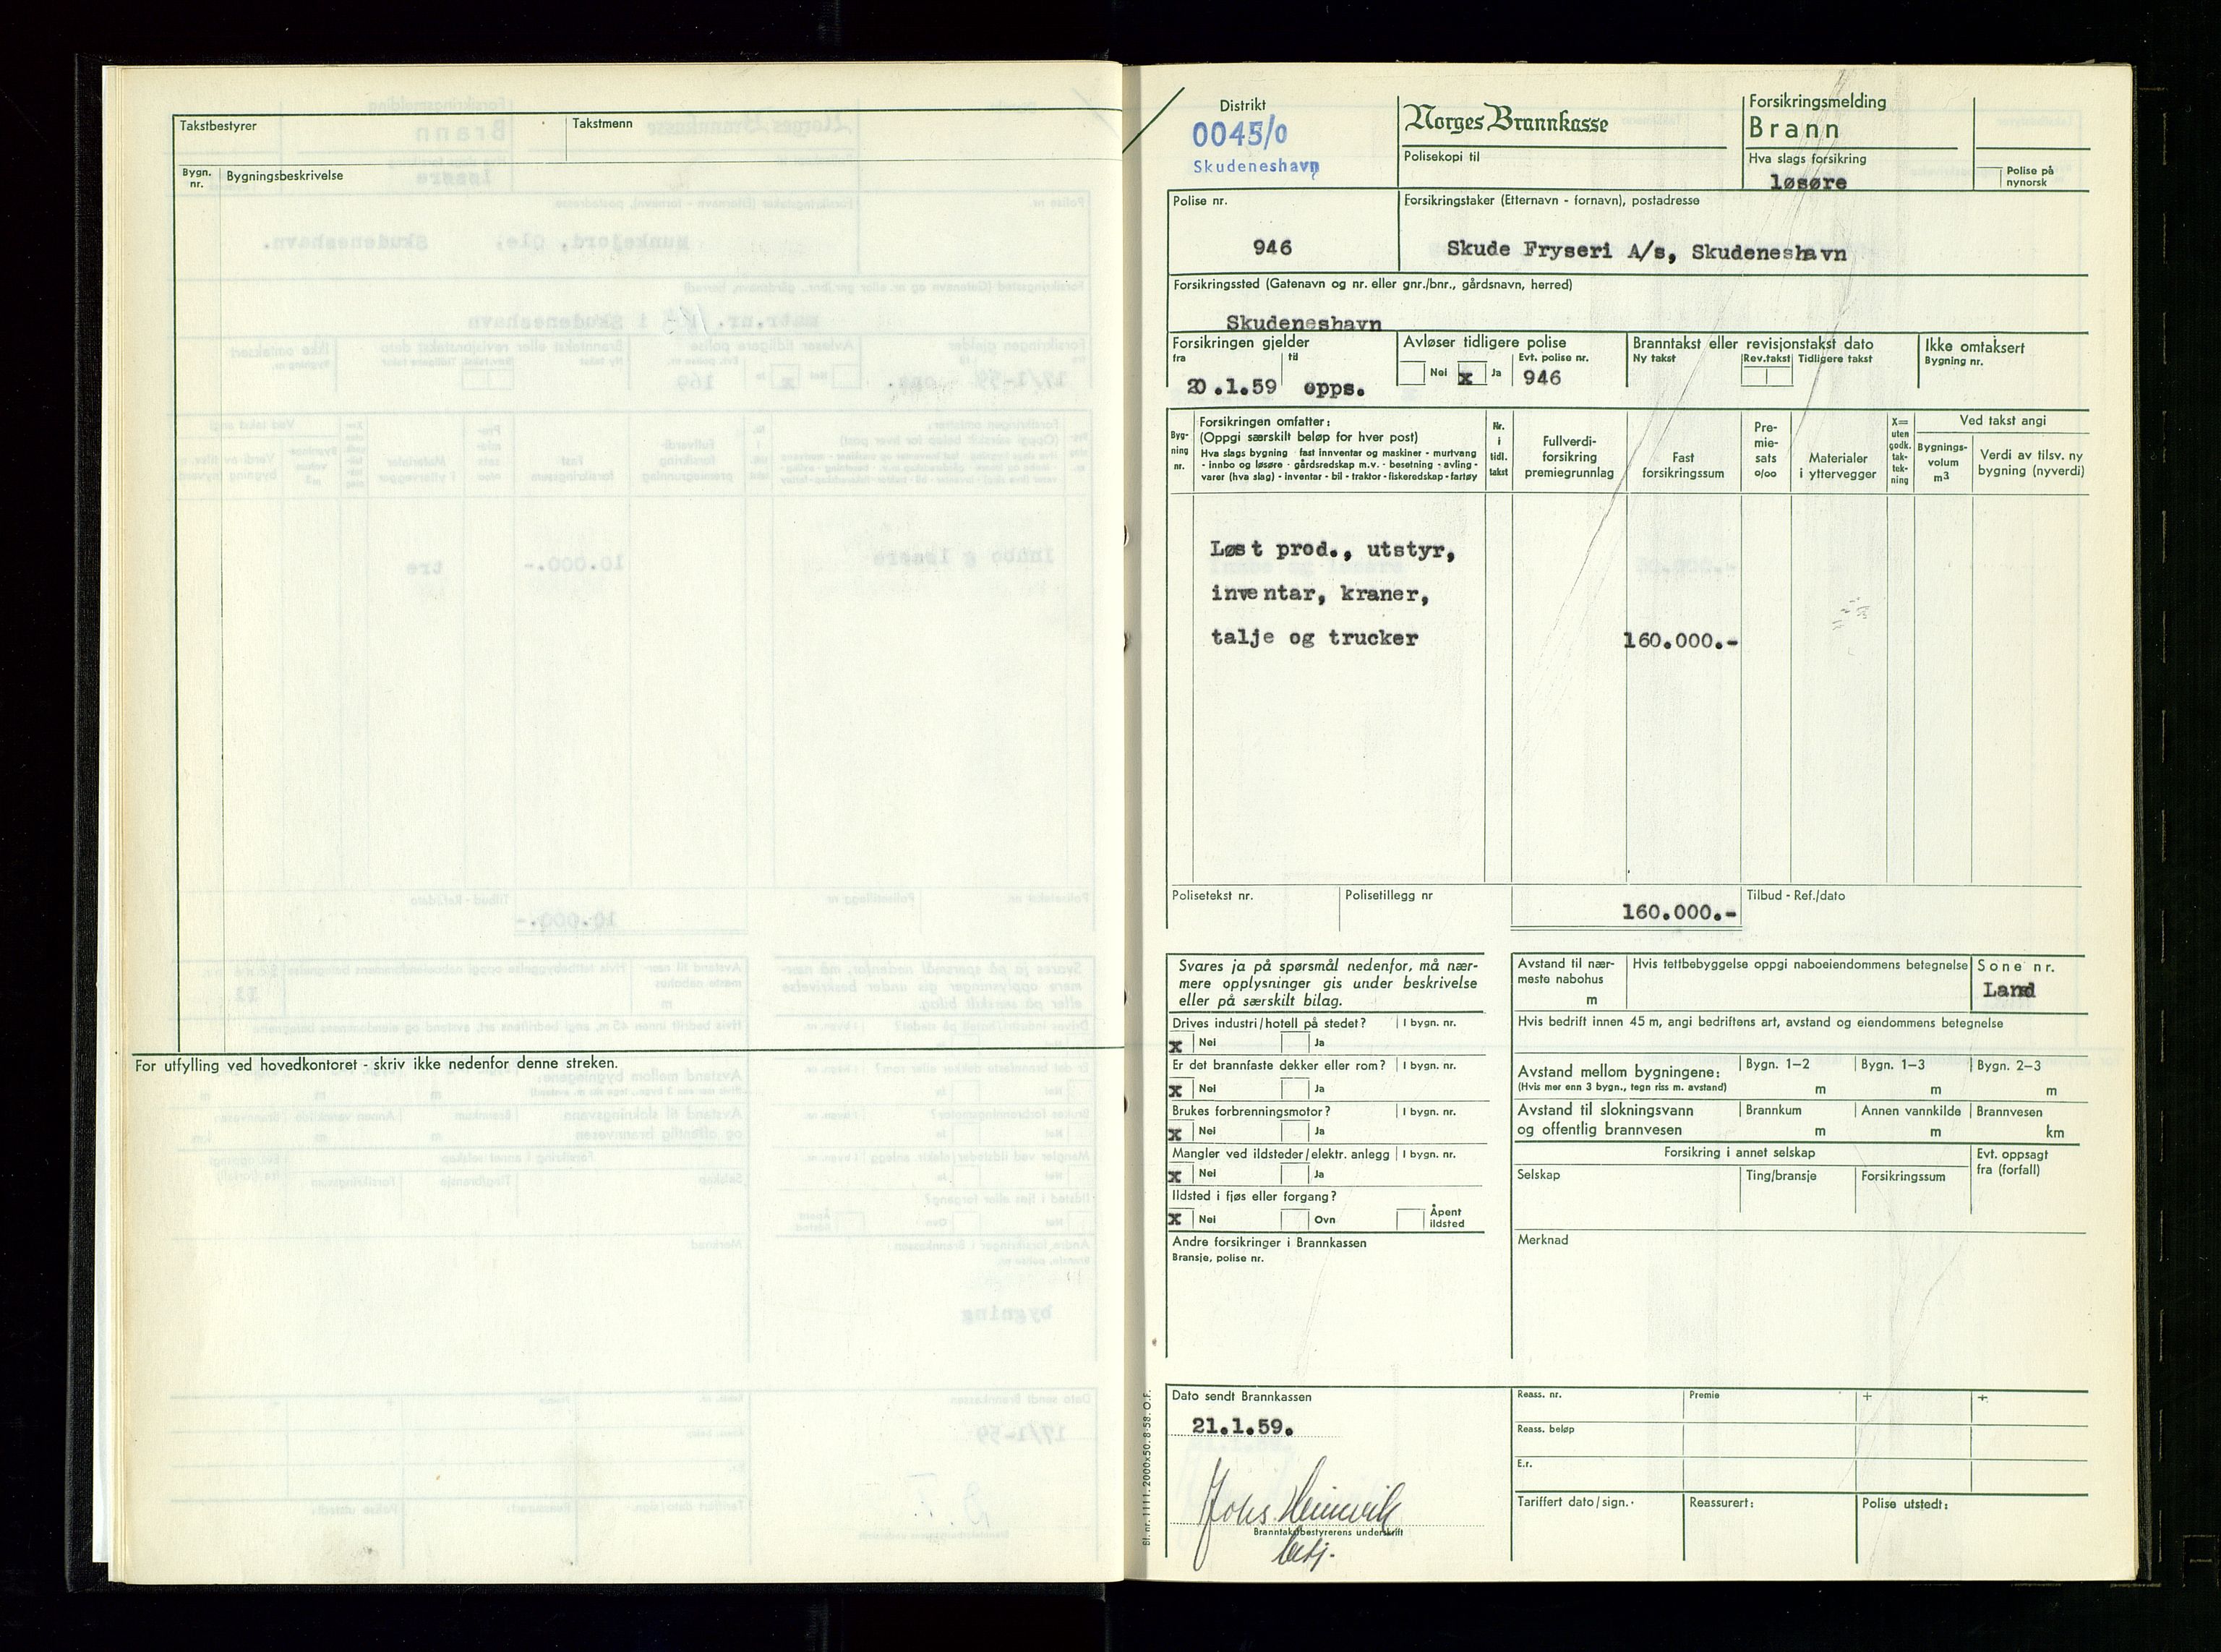 Takstbestyrer
Takstmenn
Bygn. nr.
Bygningsbeskrivelse
For utfylling ved hovedkontoret - skriv ikke nedenfor denne streken.
Distrikt
0045/0
Skudeneshavn
Norges Brannkasse
Polisekopi til
Forsikringsmelding
Brann
Hva slags forsikring
løsøre
Polise på
nynorsk
Polise nr.
946
Forsikringstaker (Etternavn - fornavn), postadresse
Skude Fryseri A/s, Skudeneshavn
Forsikringssted (Gatenavn og nr. eller gnr./bnr., gårdsnavn, herred)
Skudeneshavn
Forsikringen gjelder
fra
til
20.1.59 opps.
Avløser tidligere polise
Nei
x Ja
Evt. polise nr.
946
Branntakst eller revisjonstakst dato
Ny takst
Rev.takst
Tidligere takst
Ikke omtaksert
Bygning nr.
Byg-
ning
nr.
Forsikringen omfatter:
(Oppgi særskilt beløp for hver post)
Hva slags bygning - fast innventar og maskiner - murtvang
- innbo og løsøre - gårdsredskap m.v. - besetning - avling -
varer (hva slag) - inventar - bil - traktor - fiskeredskap - fartøy
Nr.
i
tidl.
takst
Fullverdi-
forsikring
premiegrunnlag
Fast
forsikringssum
Pre-
mie-
sats
o/oo
Materialer
i yttervegger
X=
uten
godk.
tak-
tek-
ning
Ved takst angi
Bygnings-
volum
m3
Verdi av tilsv. ny
bygning (nyverdi)
Løst prod., utstyr,
inventar, kraner,
talje og trucker 160.000.-
Polisetekst nr.
Polisetillegg nr
160.000.-
Tilbud - Ref./dato
Svares ja på spørsmål nedenfor, må nær-
mere opplysninger gis under beskrivelse
eller på særskilt bilag.
Drives industri/hotell på stedet? I bygn. nr.
x Nei Ja
Er det brannfaste dekker eller rom? I bygn. nr.
x Nei Ja
Brukes forbrenningsmotor? I bygn. nr.
x Nei Ja
Mangler ved ildsteder/elektr. anlegg I bygn. nr.
x Nei Ja
Ildsted i fjøs eller forgang?
x Nei Ovn Åpent
ildsted
Andre forsikringer i Brannkassen
Bransje, polise nr.
Avstand til nær-
meste nabohus
m
Hvis tettbebyggelse oppgi naboeiendommens betegnelse
Sone nr.
Land
Hvis bedrift innen 45 m, angi bedriftens art, avstand og eiendommens betegnelse
Avstand mellom bygningene:
(Hvis mer enn 3 bygn., tegn riss m. avstand)
Bygn. 1-2
m
Bygn. 1-3
m
Bygn. 2-3
m
Avstand til slokningsvann
og offentlig brannvesen
Brannkum
m
Annen vannkilde
m
Brannvesen
km
Forsikring i annet selskap
Selskap
Ting/bransje
Forsikringssum
Evt. oppsagt
fra (forfall)
Merknad
Dato sendt Brannkassen
21.1.59.
Johs Heimvik
Branntakstbestyrerens underskrift
besj.
Reass. nr.
Premie
+
+
Reass. beløp
E.r.
Tariffert dato/sign.
Reassurert:
Polise utstedt:
Bl. nr. 1111. 2000x50. 8-58. O.F.